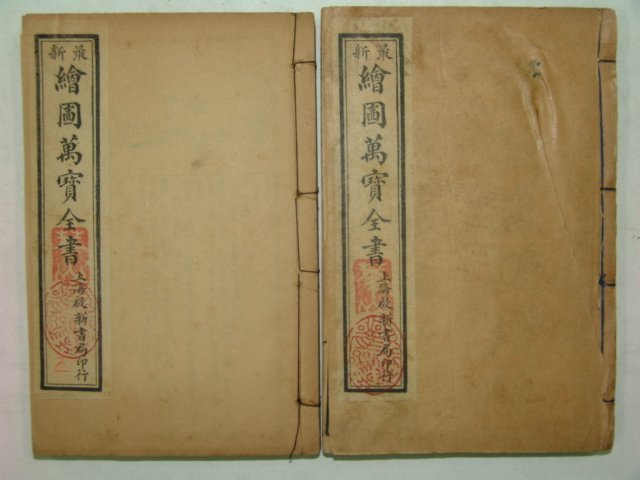 最新
繪圖萬寶全書
上海啟新書局印行
最新
繪圖萬寶全書
上海啟新書局印行